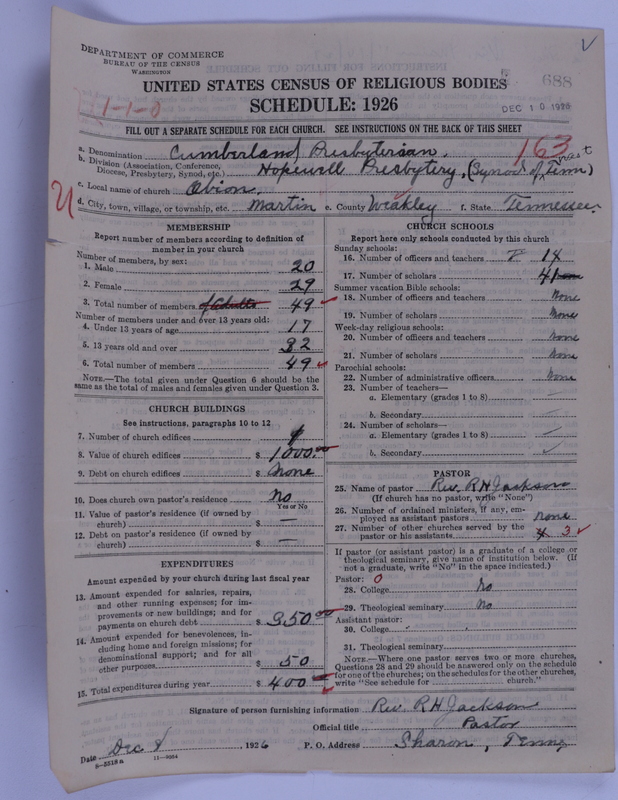 DEPARTMENT OF COMMERCE
BUREAU OF THE CENSUS
WASHINGTON
688
UNITED STATES CENSUS OF RELIGIOUS BODIES
1-1-0
SCHEDULE: 1926
DEC 10 1926
FILL OUT A SEPARATE SCHEDULE FOR EACH CHURCH. SEE INSTRUCTIONS ON THE BACK OF THIS SHEET
163
a. Denomination Cumberland Presbyterian.
b. Division (Association, Conference, Diocese, Presbytery, Synod, etc.) Hopewell Presbytery, (Synod of West Tenn)
c. Local name of church Albion.
d. City, town, village, or township, etc. Martin e. County Weakley f. State Tennessee.
MEMBERSHIP
Report number of members according to definition of
member in your church
Number of members, by sex:
1. Male 20
2. Female 29
3. Total number of members of Adults 49
Number of members under and over 13 years old:
4. Under 13 years of age 17
5. 13 years old and over 32
6. Total number of members 49
NOTE.—The total given under Question 6 should be the
same as the total of males and females given under Question 3.
CHURCH BUILDINGS
See instructions, paragraphs 10 to 12
7. Number of church edifices 1
8. Value of church edifices $ 1000.00
9. Debt on church edifices $ None
10. Does church own pastor's residence No
Yes or No
11. Value of pastor's residence (if owned by
church) $ —
12. Debt on pastor's residence (if owned by
church) $ —
EXPENDITURES
Amount expended by your church during last fiscal year
13. Amount expended for salaries, repairs,
and other running expenses; for im-
provements or new buildings; and for
payments on church debt $ 350.00
14. Amount expended for benevolences, in-
cluding home and foreign missions; for
denominational support; and for all
other purposes $ 50
15. Total expenditures during year $ 400
CHURCH SCHOOLS
Report here only schools conducted by this church
Sunday schools:
16. Number of officers and teachers 18
17. Number of scholars 41
Summer vacation Bible schools:
18. Number of officers and teachers None
19. Number of scholars None
Week-day religious schools:
20. Number of officers and teachers None
21. Number of scholars None
Parochial schools:
22. Number of administrative officers None
23. Number of teachers—
a. Elementary (grades 1 to 8) —
b. Secondary —
24. Number of scholars—
a. Elementary (grades 1 to 8) —
b. Secondary
PASTOR
25. Name of pastor Rev. R H Jackson
(If church has no pastor, write "None")
26. Number of ordained ministers, if any, em-
ployed as assistant pastors none
27. Number of other churches served by the
pastor or his assistants 4 3
If pastor (or assistant pastor) is a graduate of a college or
theological seminary, give name of institution below. (If
not a graduate, write "No" in the space indicated.)
Pastor: 0
28. College No
29. Theological seminary No
Assistant pastor:
30. College
31. Theological seminary
NOTE.—Where one pastor serves two or more churches,
Questions 28 and 29 should be answered only on the schedule
for one of the churches; on the schedules for the other churches,
write "See schedule for church."
Signature of person furnishing information Rev. R H Jackson
Official title Pastor
Date Dec 8, 1926 P. O. Address Sharon, Tenn
8-5518a 11-9064